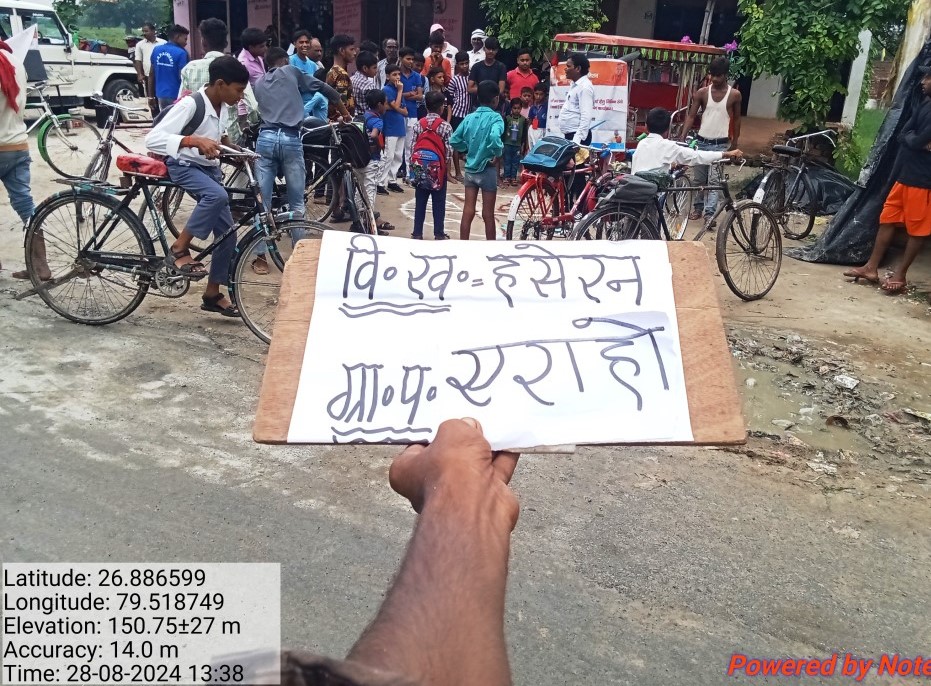 वि॰ख॰=हसेरन
ग्रा॰प॰ सराहो
Latitude: 26.886599
Longitude: 79.518749
Elevation: 150.75±27 m
Accuracy: 14.0 m
Time: 28-08-2024 13:38
Powered by Note